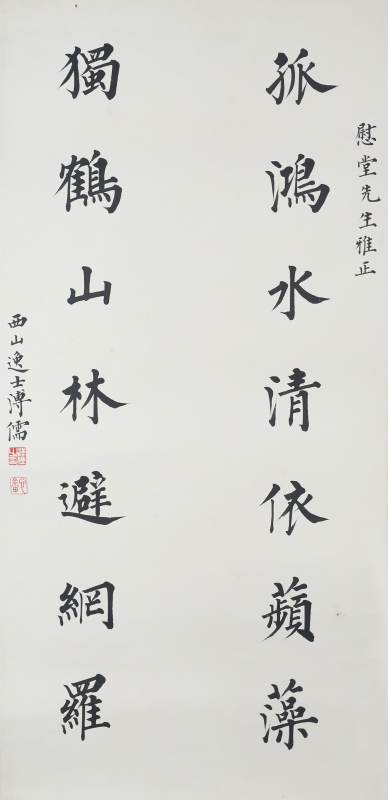 慰堂先生雅正
孤鴻水清依蘋藻
獨鶴山林避網羅
西山逸士溥儒